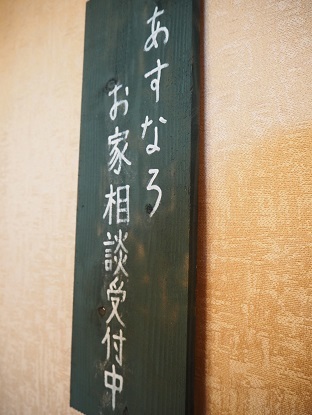 あすなろ
お家相談受付中